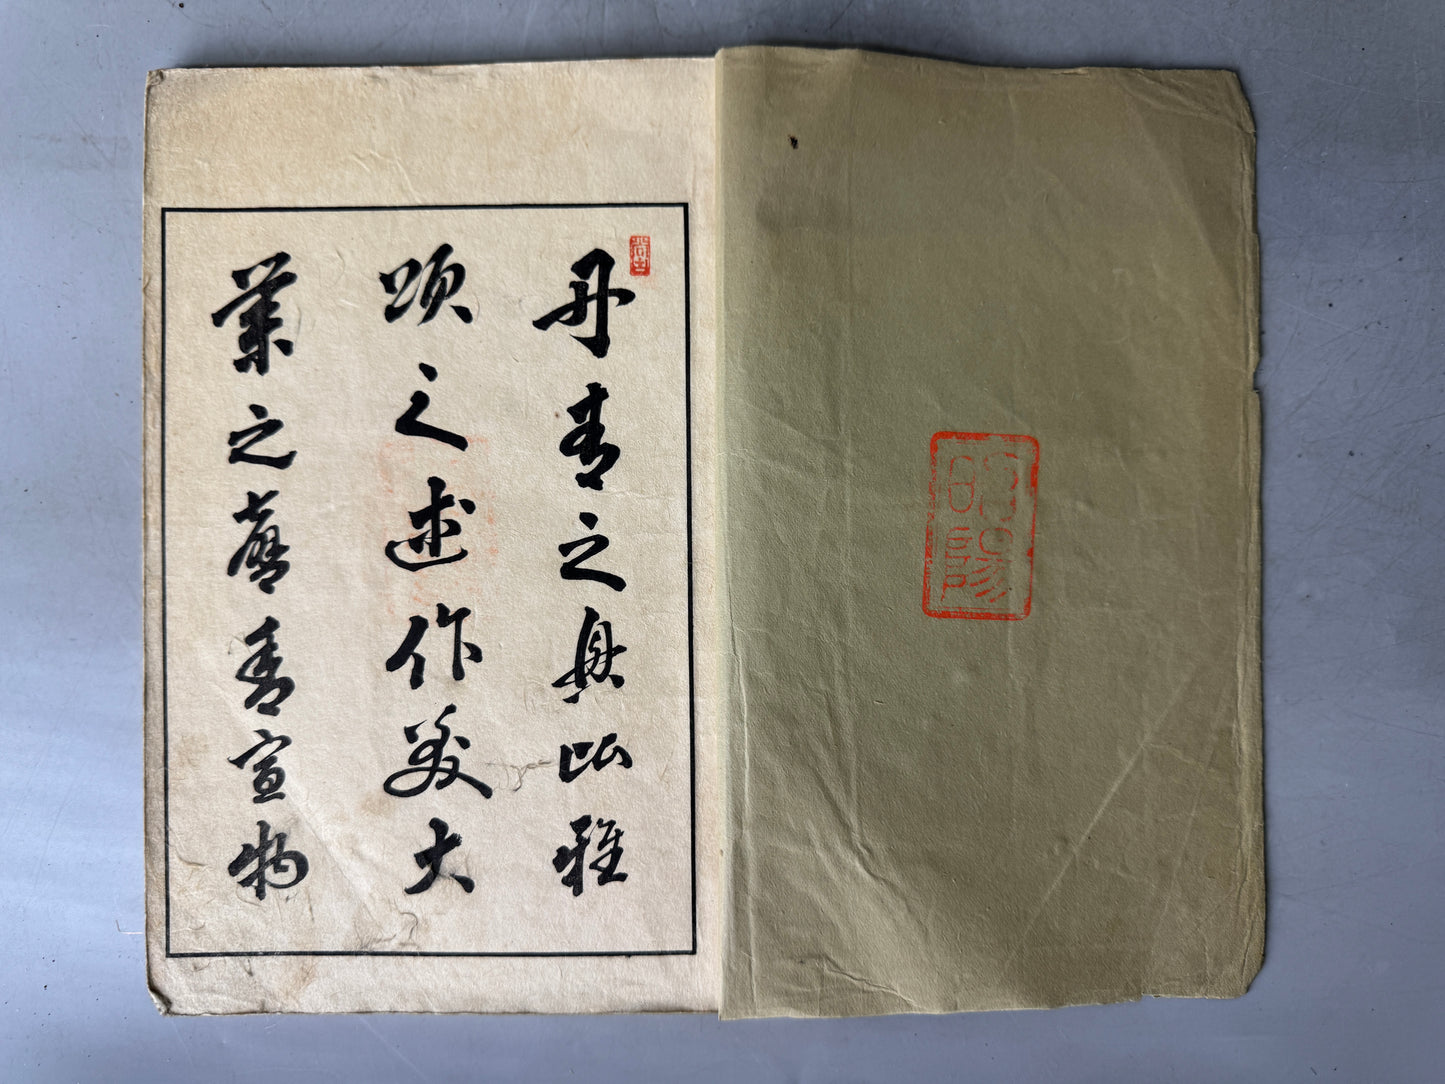 明陽
丹青之興比雅
頌之述作美大
業之馨香宣物